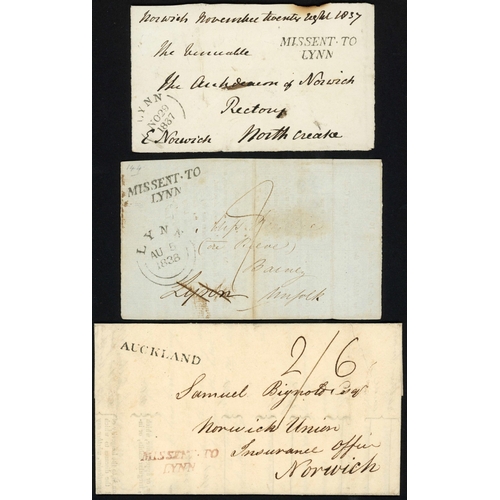 Norwich November twenty eight 1837
MISSENT·TO
LYNN
The Venerable
The Archdeacon of Norwich
Rectory
E Norwich North Creake
LYNN
NO 29
1837
MISSENT·TO
LYNN
LYNN
AU
1838
Miss
Barney
Lynn Norfolk
AUCKLAND
2/6
Samuel Bignold Esq
Norwich Union
Insurance Office
Norwich
MISSENT·TO
LYNN